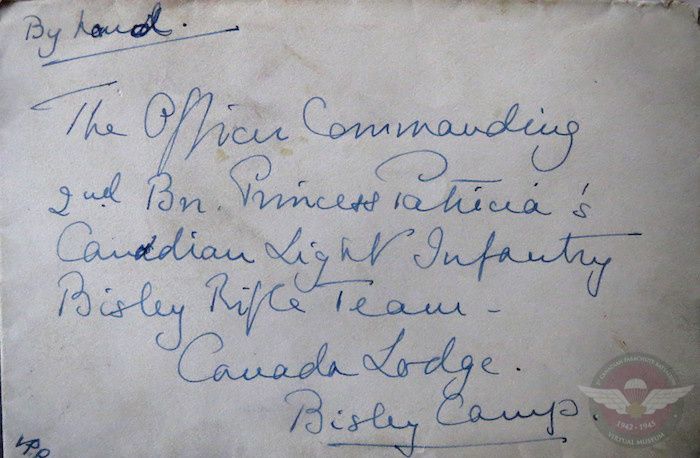 By hand.
The Officer Commanding
2nd Bn. Princess Patricia's
Canadian Light Infantry
Bisley Rifle Team -
Canada Lodge.
Bisley Camp.
1ST CANADIAN PARACHUTE BATTALION
1942 - 1945
VIRTUAL MUSEUM